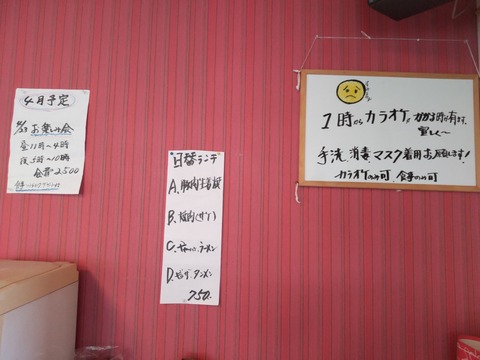 4月予定
4/23 お楽しみ会
昼11時〜4時
夜5時〜10時
会費2,500
日替ランチ
A. 豚肉生姜
B.
C. ラーメン
D. タンメン
750.
1時からカラオケがかかる時が有ます。
宜しく〜
手洗、消毒マスク着用お願します!
カラオケのみ可 食事のみ可